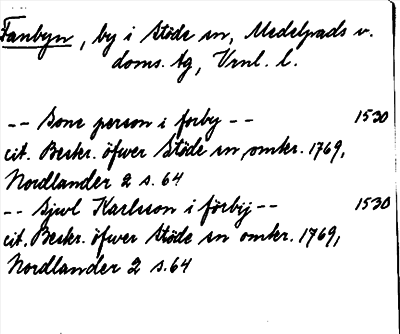 Fanbyn, by i Stöde sn, Medelpads v.
doms. tg, Vrnl. l.
-- Sone person i forby -- 1530
cit. Beskr. öfwer Stöde sn, omkr. 1769,
Nordlander 2 s. 64
-- Sjwl Karlsson i förbÿ -- 1530
cit. Beskr. öfwer Stöde sn omkr. 1769,
Nordlander 2 s. 64